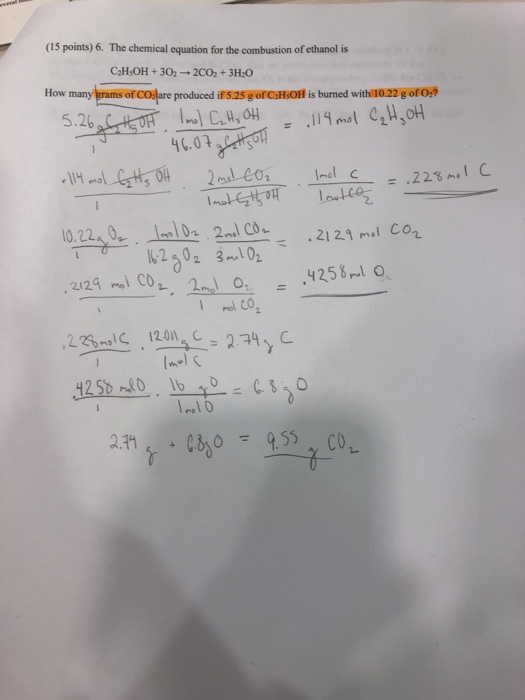 (15 points) 6. The chemical equation for the combustion of ethanol is
C₂H₅OH + 3O₂ → 2CO₂ + 3H₂O
How many grams of CO₂ are produced if 5.25 g of C₂H₅OH is burned with 10.22 g of O₂?
5.26 g C₂H₅OH / 1 · 1mol C₂H₅OH / 46.07 g C₂H₅OH = .114 mol C₂H₅OH
.114 mol C₂H₅OH / 1 · 2mol CO₂ / 1mol C₂H₅OH · 1mol C / 1molCO₂ = .228 mol C
10.22g O₂ / 1 · 1mol O₂ / 16·2 g O₂ · 2mol CO₂ / 3 mol O₂ = .2129 mol CO₂
.2129 mol CO₂ / 1 · 2mol O / 1 mol CO₂ = .4258 mol O
.228mol C / 1 · 12.011 g C / 1mol C = 2.74 g C
.4258 mol O / 1 · 16 g O / 1mol O = 6.8 g O
2.74 g + 6.8 g O = 9.55 g CO₂